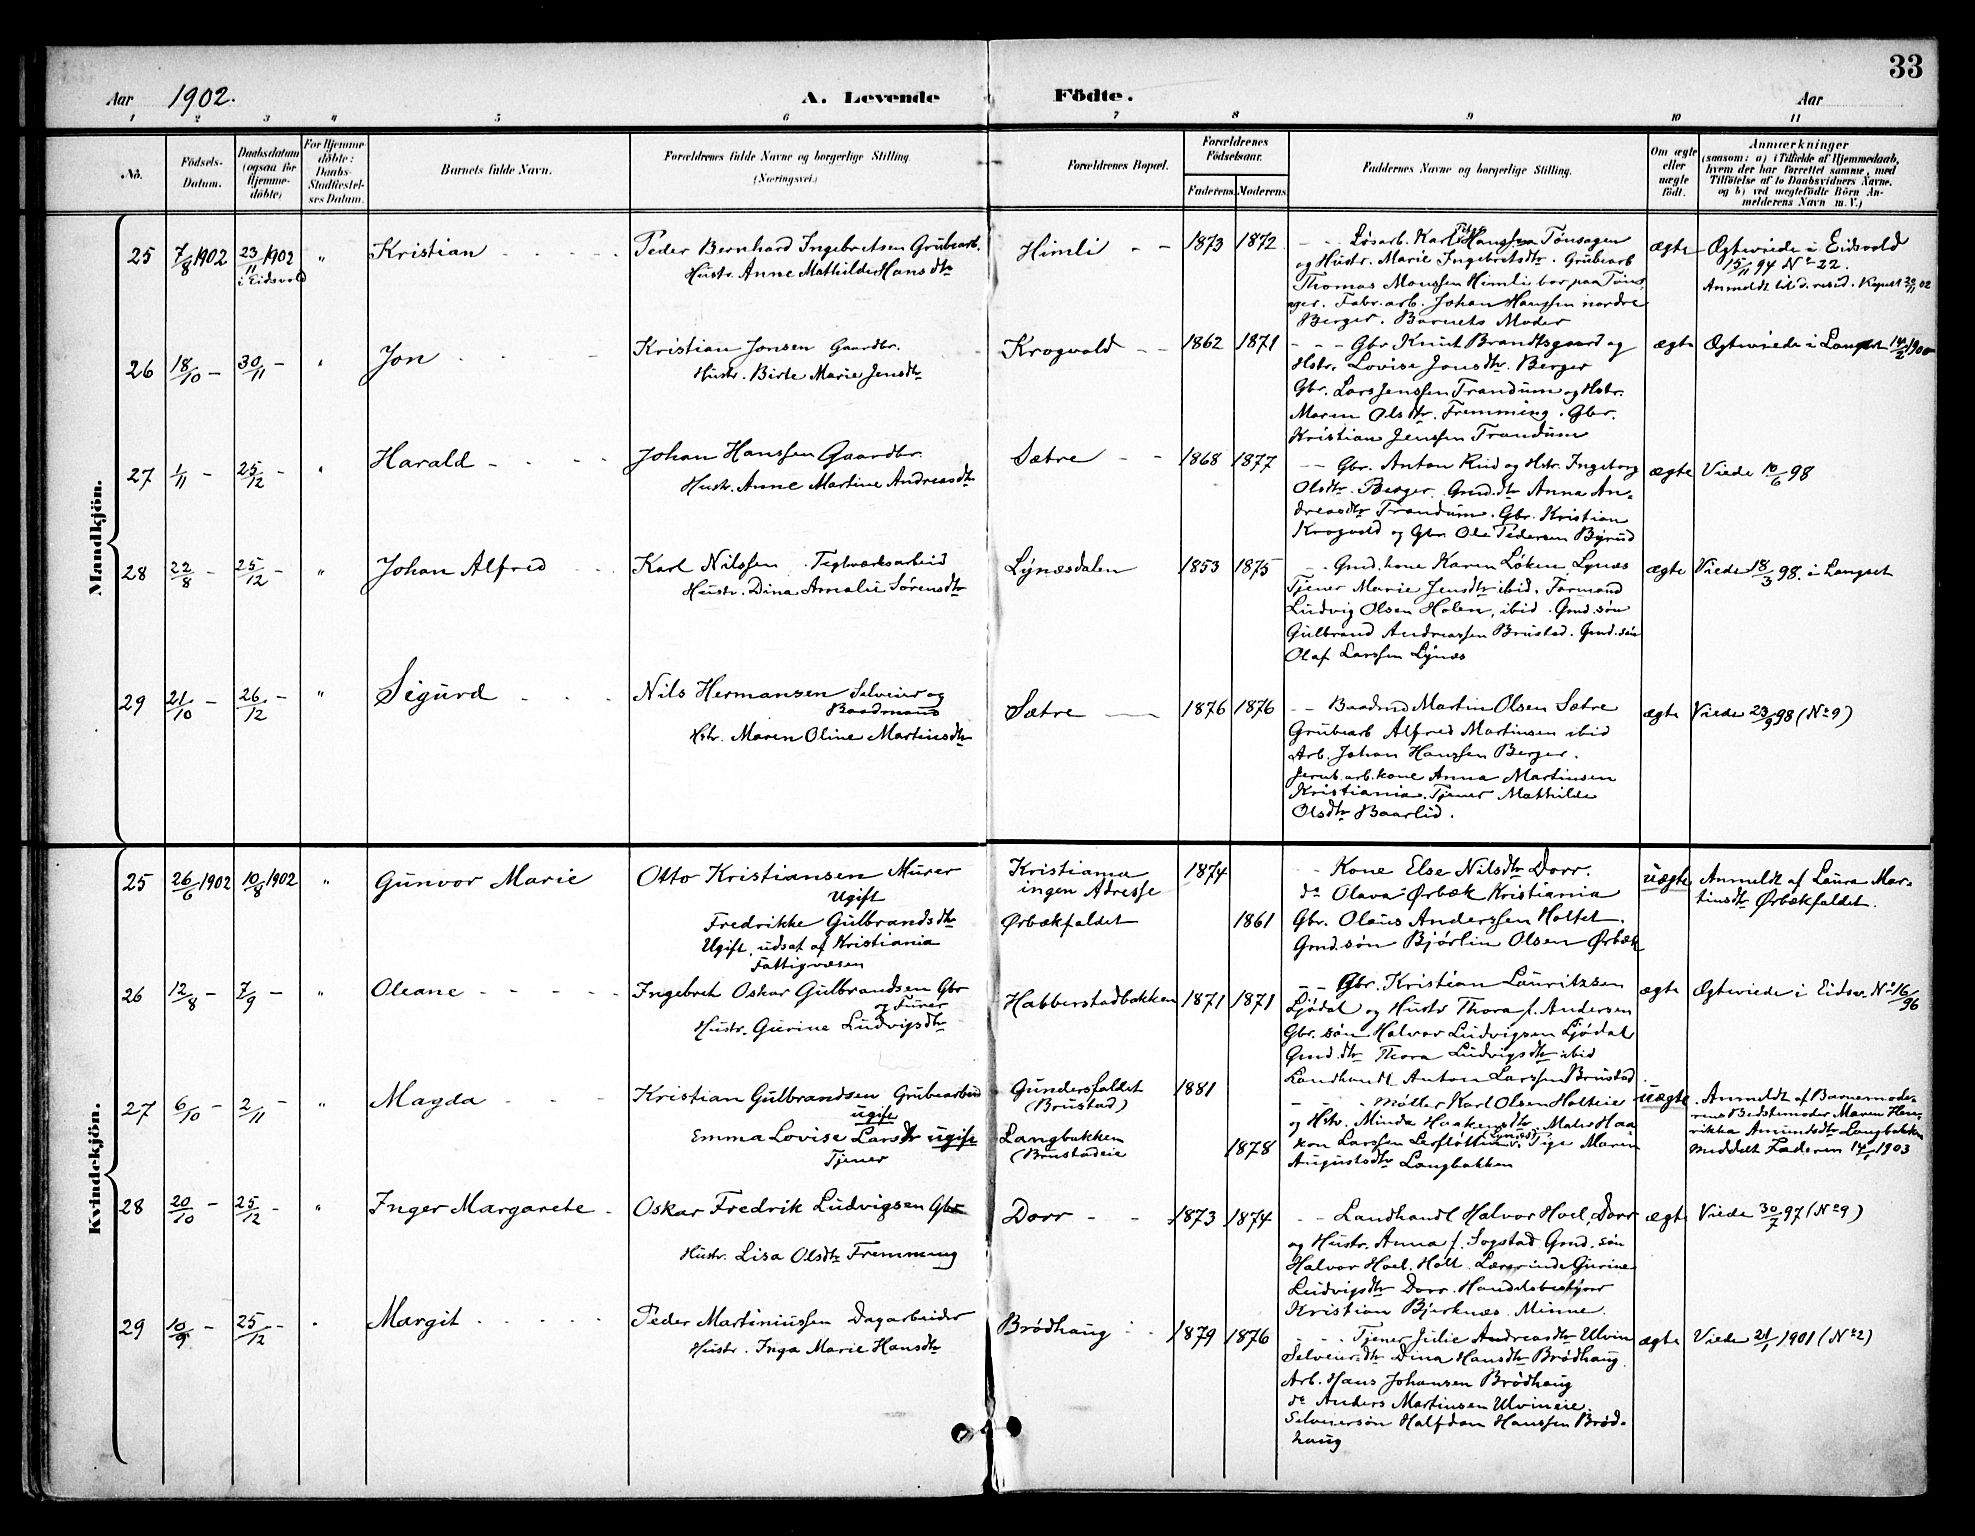 33
Aar 1902. A. Levende Födte. Aar
1 2 3 4 5 6 7 8 9 10 11
No. Födsels-Datum. Daabsdatum (ogsaa for Hjemme-döbte) For Hjemme-döbte: Daabs-Stadfæstel-ses Datum. Barnets fulde Navn. Forældrenes fulde Navne og borgerlige Stilling. (Næringsvei.) Forældrenes Bopæl. Forældrenes Födselsaar. Faderens Moderens Faddernes Navne og borgerlige Stilling. Om ægte eller uægte födt. Anmærkninger (saasom: a) i Tilfælde af Hjemmedaab, hvem der har forrettet samme, med Tilföielse af to Daabsvidners Navne, og b) ved uægtefödte Börn An-melderens Navn m. V.)
Mandkjön.
25 7/8 1902 23/11 1902 i Eidsvold " Kristian
Peder Bernhard Ingebretsen Grubearb.
Hustr. Anne Mathilde Hansdtr
Himli 1873 1872
Løsarb. Karl Hanssen Tønsagen
og Hustr. Marie Ingebretsdtr. Grubearb
Thomas Monssen Himli bor paa Tøns-
ager. Fabr. arb. Johan Hanssen nordre
Berger. Barnets Moder
ægte Ægteviede i Eidsvold
15/11 94 No 22.
Anmeldt til d. resid. Kapell 20/11 02
26 18/10 – 30/11 – " Jon
Kristian Jonsen Gaardbr.
Hustr. Birte Marie Jensdtr
Krogvold 1862 1871
Gbr Knut Brandtsgaard og
Hstr. Lovise Jonsdtr. Berger
Gbr. Lars Jenssen Trandum og Hstr.
Maren Olsdtr. Fremming. Gbr.
Kristian Jenssen Trandum
ægte Ægteviede i Langset 14/2 1900
27 1/11 – 25/12 – " Harald
Johan Hanssen Gaardbr.
Hustr. Anne Martine Andreasdtr
Sætre 1868 1877
Gbr. Anton Rud og Hstr. Ingeborg
Olsdtr. Berger. Gmd.dtr Anna An-
dreasdtr Trandum. Gbr. Kristian
Krogvold og Gbr Ole Pedersen Byrud
ægte Viede 10/6 98
28 22/8 – 25/12 – " Johan Alfred
Karl Nilssen Teglværksarbeid
Hustr. Dina Amalie Sørensdtr
Lynæsdalen 1853 1875
Gmd. kone Karen Løken Lynæs
Tjener Marie Jensdtr ibid. Formand
Ludvig Olsen Holen, ibid. Gmd. søn
Gulbrand Andreassen Brustad. Gmd. søn
Olaf Larssen Lynæs
ægte Viede 18/3 98. i Langset
29 21/10 – 26/12 – " Sigurd
Nils Hermansen Selveier og
Baadmand
Hstr. Maren Oline Martinsdtr
Sætre 1876 1876
Baadmd Martin Olsen Sætre
Grubearb Alfred Martinsen ibid
Arb. Johan Hanssen Berger.
Jernb. arb. kone Anna Martinsen
Kristiania. Tjener Mathilde
Olsdtr Baarlid.
ægte Viede 23/9 98 (No 9)
Kvindekjön.
25 26/6 1902 10/8 1902 " Gunvor Marie
Otto Kristiansen Murer
Ugift
Fredrikke Gulbrandsdtr
Ugift, udsat af Kristiania
Fattigvæsen
Kristiania
ingen Adresse
Ørbækfaldet
1874 1861
Kone Else Nilsdtr Dorr.
do Olava Ørbæk Kristiania
Gbr. Olaus Anderssen Holtet.
Gmd. søn Bjørlin Olsen Ørbæk
uægte Anmeldt af Laura Mar-
tinsdtr Ørbækfaldet.
26 12/8 – 7/9 – " Oleane
Ingebret Oskar Gulbrandsen Gbr
og Furer
Hustr. Gurine Ludvigsdtr
Habberstadbakken 1871 1871
Gbr. Kristian Lauritzsen
Ljødal og Hustr Thora f. Andersen
Gbr. søn Halvor Ludvigsen Ljødal
Gmd. dtr Thora Ludvigsdtr ibid
Landhandl Anton Larssen Brustad
ægte Ægteviede i Eidsv. No 16/96
27 6/10 – 2/11 – " Magda
Kristian Gulbrandsen Grubearbeid
ugift
Emma Lovise Larsdtr ugift
Tjener
Gundersfaldet
(Brustad)
Langbakken
(Brustadeie
1881 1878
Møller Karl Olsen Holteie
og Hstr. Minda Haakensdtr. Maler Haa
kon Larssen Lerstøtten. Pige Maren
Augustsdtr Langbakken
uægte Anmeldt af Barnemode-
rens Bedstemoder Maren Hen-
rikka Amundsdtr Langbakken
meddelt Faderen 14/1 1903
28 20/10 – 25/12 – " Inger Margarete
Oskar Fredrik Ludvigsen Gbr
Hustr. Lisa Olsdtr Fremming
Dorr 1873 1874
Landhandl Halvor Hoel, Dorr
og Hustr. Anna f. Sogstad Gmd. søn
Halvor Hoel. Holt. Lærerinde Gurine
Ludvigsdtr Dorr. Handelsbestyrer
Kristian Bjerknæs. Minne.
ægte Viede 30/7 97 (No 9)
29 10/9 – 25/12 – " Margit
Peder Martiniussen Dagarbeider
Hustr. Inga Marie Hansdtr
Brødhaug 1879 1876
Tjener Julie Andreasdtr Ulvin
Selveier.dtr Dina Hansdtr Brødhaug
Arb. Hans Johansen Brødhaug
do Anders Martinsen Ulvineie.
Selveiersøn Halfdan Hanssen Brød-
haug
ægte Viede 21/1 1901 (No 2)